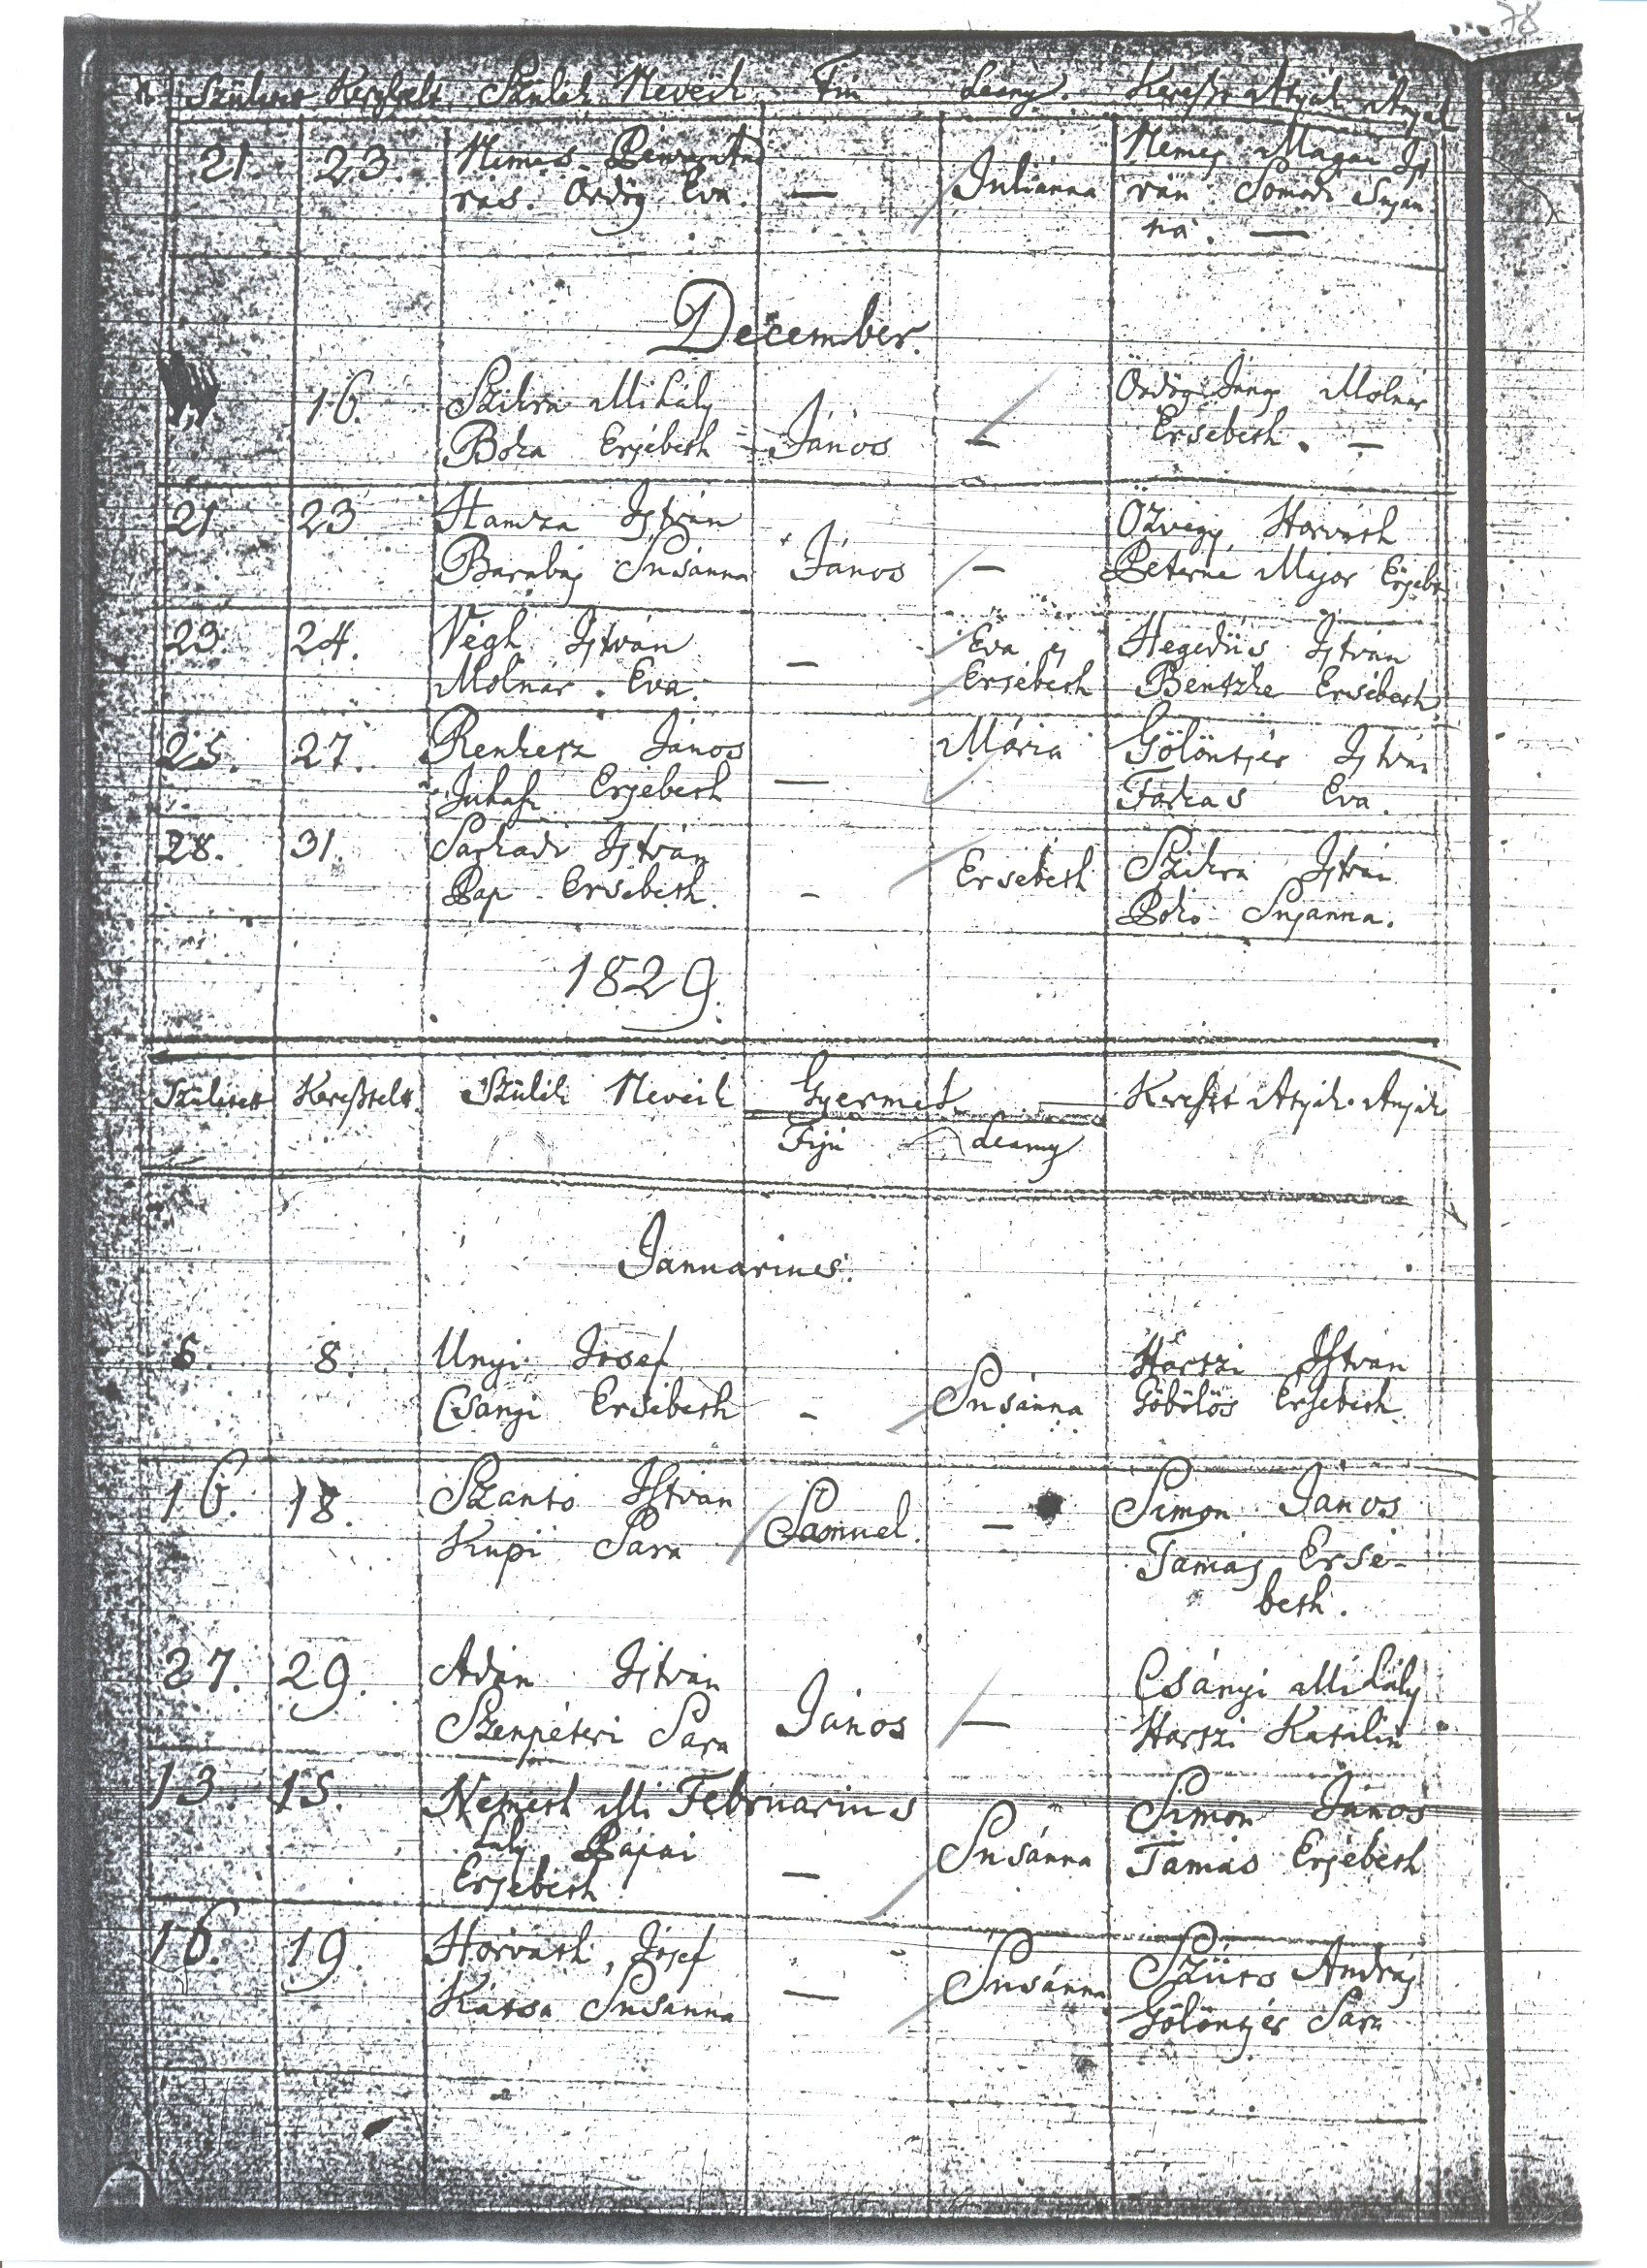 78
Született Keresztelt Szülék Neveik Fiu Leány Kereszt Attyok Annyok
21. 23. Nemes And
rás. Ördög Eva. — Juliánna Nemes Magai Is
ván Somodi Susan
na. —
December.
16. Szikra Mihály
Boka Ersébeth János — Ördög János Molnar
Ersébeth. —
21 23 Hamza István
Barabás Susánna János — Özvegy Horváth
Peterné Major Ersébe
23. 24. Végh István
Molnár. Eva. — Eva es
Ersébeth Hegedüs István
Bentzke Ersébeth
25. 27. Renkesz János
Juhász Ersébeth — Mária Gölöntsér István
Farkas Eva.
28. 31. Sarkadi István
Pap Ersébeth. — Ersébeth Szikra István
Boko Susanna.
1829.
Született Keresztelt. Szülék Neveik Gyermek Kereszt Attyok. Anyok
Fiju Leany
Januarius.
6. 8. Unyi Josef
Csanyi Ersébeth — Susánna Hartzi István
Göbölös Ersébeth
16. 18. Szanto István
Kupi Sara Samuel. — Simon János
Tamás Ersé-
beth.
27. 29. Adám István
Szenpéteri Sara János — Csányi Mihály
Hartzi Katalin
Februarius
13. 15. Németh Mi
hály Pápai
Ersébeth — Susánna Simon János
Tamás Ersébeth
16. 19. Horváth, Jósef
Katsa Susánna — Susánna Szüts András
Gölöntsér Sara